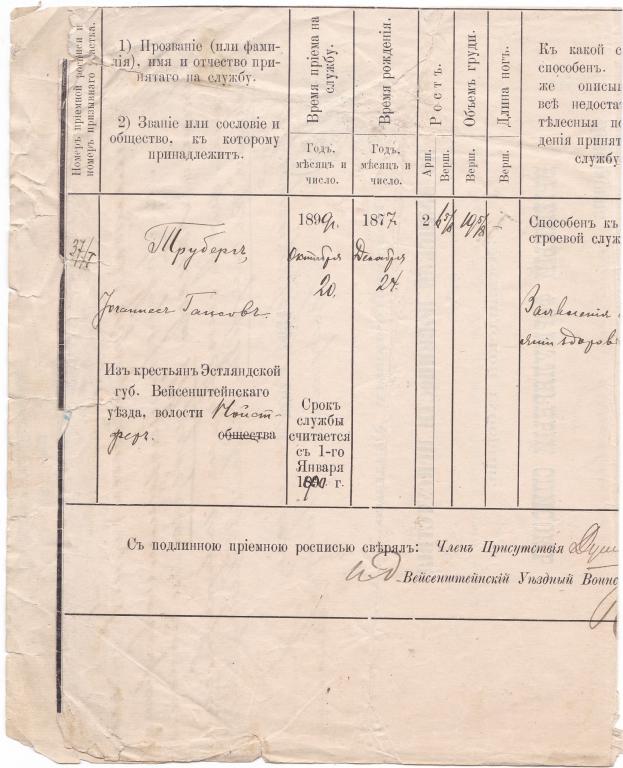 Номеръ пріемной росписи и
номеръ призывнаго участка.
1) Прозваніе (или фами-
лія), имя и отчество при-
нятаго на службу.
2) Званіе или сословіе и
общество, къ которому
принадлежитъ.
Время пріема на
службу.
Годъ,
мѣсяцъ и
число.
Время рожденія.
Годъ,
мѣсяцъ и
число.
Ростъ.
Арш.
Верш.
Объемъ груди.
Верш.
Длина ногъ.
Верш.
Къ какой с
способенъ.
же описы
всѣ недоста
тѣлесныя по
денія принят
службу
Труберъ
Іоганнесъ Гансовъ.
Изъ крестьянъ Эстляндской
губ. Вейсенштейнскаго
уѣзда, волости Нойст-
феръ. общества
1899г.
Октября
20.
Срокъ
службы
считается
съ 1-го
Января
г.
1877
Декабря
24.
2
6 5/8
19 5/8
Способенъ къ
строевой служ
Съ подлинною пріемною росписью свѣрялъ: Членъ Присутствія
Вейсенштейнскій Уѣздный Воинс